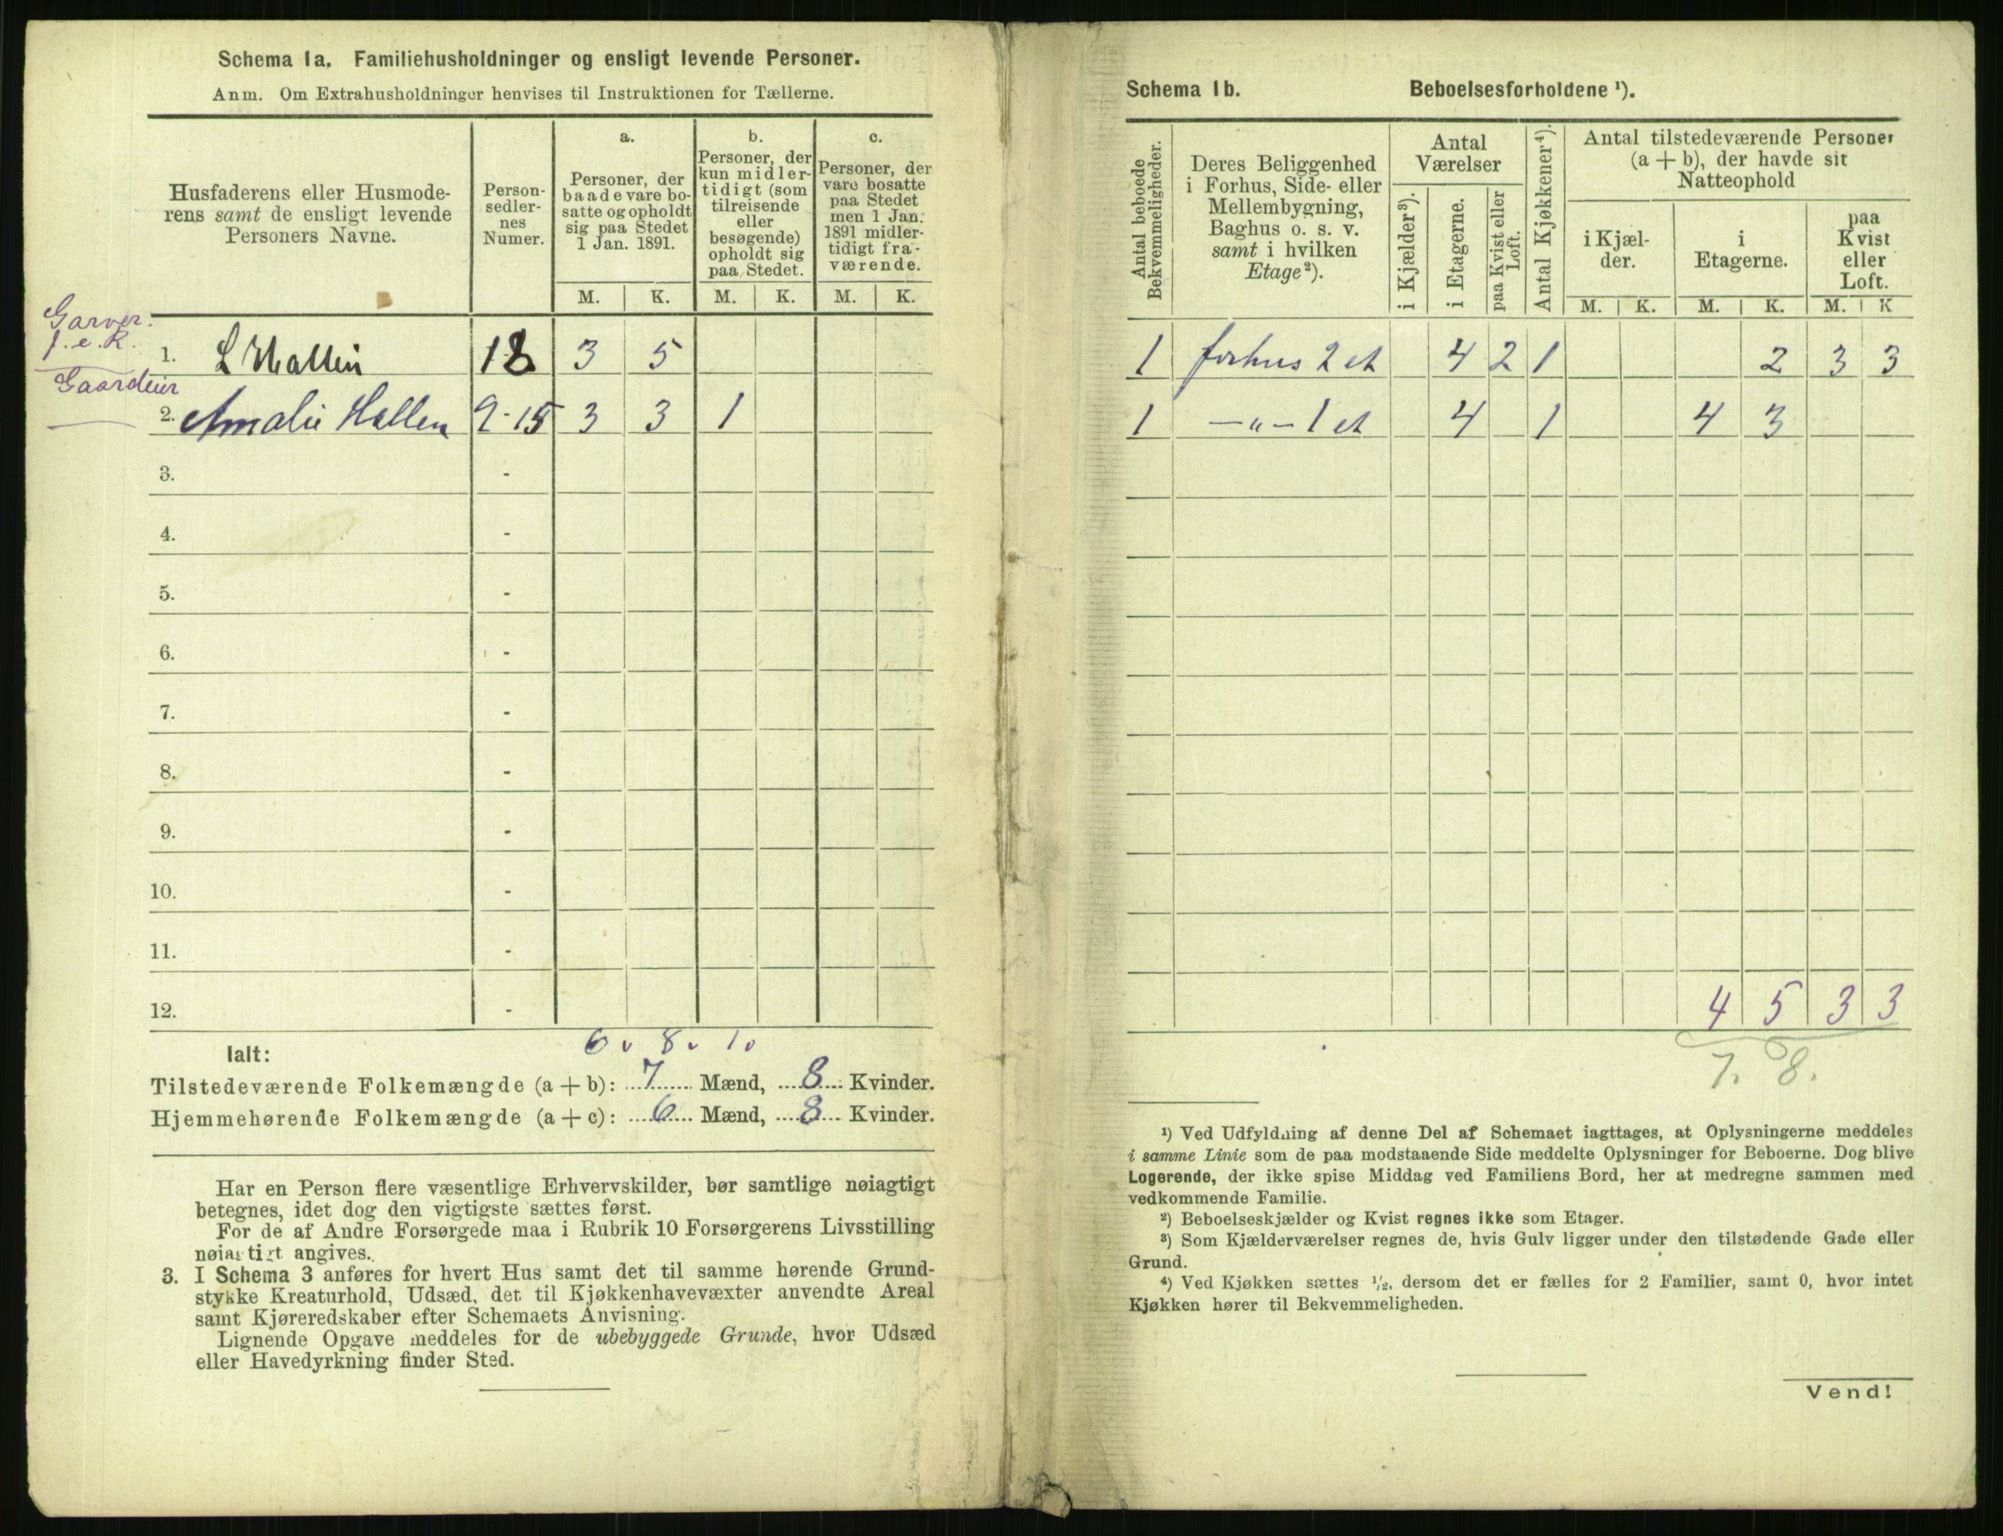 Schema 1a. Familiehusholdninger og ensligt levende Personer.
Anm. Om Extrahusholdninger henvises til Instruktionen for Tællerne.
Husfaderens eller Husmode-
rens samt de ensligt levende
Personers Navne.
Person-
sedler-
nes
Numer.
a.
Personer, der
baade vare bo-
satte og opholdt
sig paa Stedet
1 Jan. 1891.
b.
Personer, der
kun midler-
tidigt (som
tilreisende
eller
besøgende)
opholdt sig
paa Stedet.
c.
Personer, der
vare bosatte
paa Stedet
men 1 Jan.
1891 midler-
tidigt fra-
værende.
M. K. M. K. M. K.
Garver.
f.e.R.
1. L Hallen 1-8 3 5
Gaardeier
2. Amalie Hallen 9-15 3 3 1
3. -
4. -
5. -
6. -
7. -
8. -
9. -
10. -
11. -
12. -
6 8 1
Ialt:
Tilstedeværende Folkemængde (a + b): 7 Mænd, 8 Kvinder.
Hjemmehørende Folkemængde (a + c): 6 Mænd, 8 Kvinder.
Har en Person flere væsentlige Erhvervskilder, bør samtlige nøiagtigt
betegnes, idet dog den vigtigste sættes først.
For de af Andre Forsørgede maa i Rubrik 10 Forsørgerens Livsstilling
nøiagtigt angives.
3. I Schema 3 anføres for hvert Hus samt det til samme hørende Grund-
stykke Kreaturhold, Udsæd, det til Kjøkkenhavevæxter anvendte Areal
samt Kjøreredskaber efter Schemaets Anvisning.
Lignende Opgave meddeles for de ubebyggede Grunde, hvor Udsæd
eller Havedyrkning finder Sted.
Schema 1b. Beboelsesforholdene ¹).
Antal beboede
Bekvemmeligheder.
Deres Beliggenhed
i Forhus, Side- eller
Mellembygning,
Baghus o. s. v.
samt i hvilken
Etage²).
Antal
Værelser
i Kjælder³).
i Etagerne.
paa Kvist eller
Loft.
Antal Kjøkkener⁴).
Antal tilstedeværende Personer
(a + b), der havde sit
Natteophold
i Kjæl-
der.
i
Etagerne.
paa
Kvist
eller
Loft.
M. K. M. K. M. K
1 forhus 2 et 4 2 1 2 3 3
1 -„- 1 et 4 1 4 3
4 5 3 3
7. 8.
¹) Ved Udfyldning af denne Del af Schemaet iagttages, at Oplysningerne meddeles
i samme Linie som de paa modstaaende Side meddelte Oplysninger for Beboerne. Dog blive
Logerende, der ikke spise Middag ved Familiens Bord, her at medregne sammen med
vedkommende Familie.
²) Beboelseskjælder og Kvist regnes ikke som Etager.
³) Som Kjælderværelser regnes de, hvis Gulv ligger under den tilstødende Gade eller
Grund.
⁴) Ved Kjøkken sættes ½, dersom det er fælles for 2 Familier, samt 0, hvor intet
Kjøkken hører til Bekvemmeligheden.
Vend!